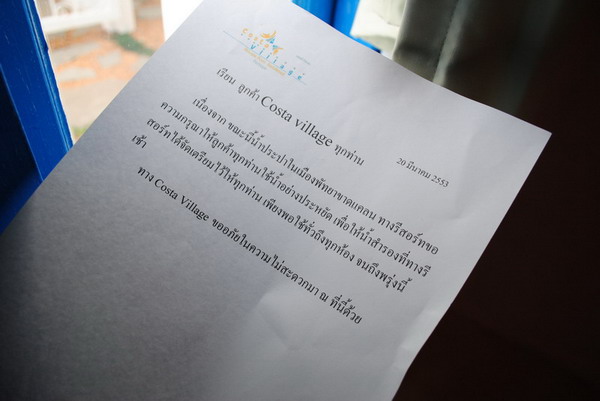 Costa
Village
20 มีนาคม 2553
เรียน ลูกค้า Costa village ทุกท่าน
เนื่องจาก ขณะนี้น้ำประปาในเมืองพัทยาขาดแคลน ทางรีสอร์ทขอ
ความกรุณาให้ลูกค้าทุกท่านใช้น้ำอย่างประหยัด เพื่อให้น้ำสำรองที่ทางรี
สอร์ทได้จัดเตรียมไว้ให้ทุกท่าน เพียงพอใช้ทั่วถึงทุกห้อง จนถึงพรุ่งนี้
เช้า
ทาง Costa Village ขออภัยในความไม่สะดวกมา ณ ที่นี้ด้วย